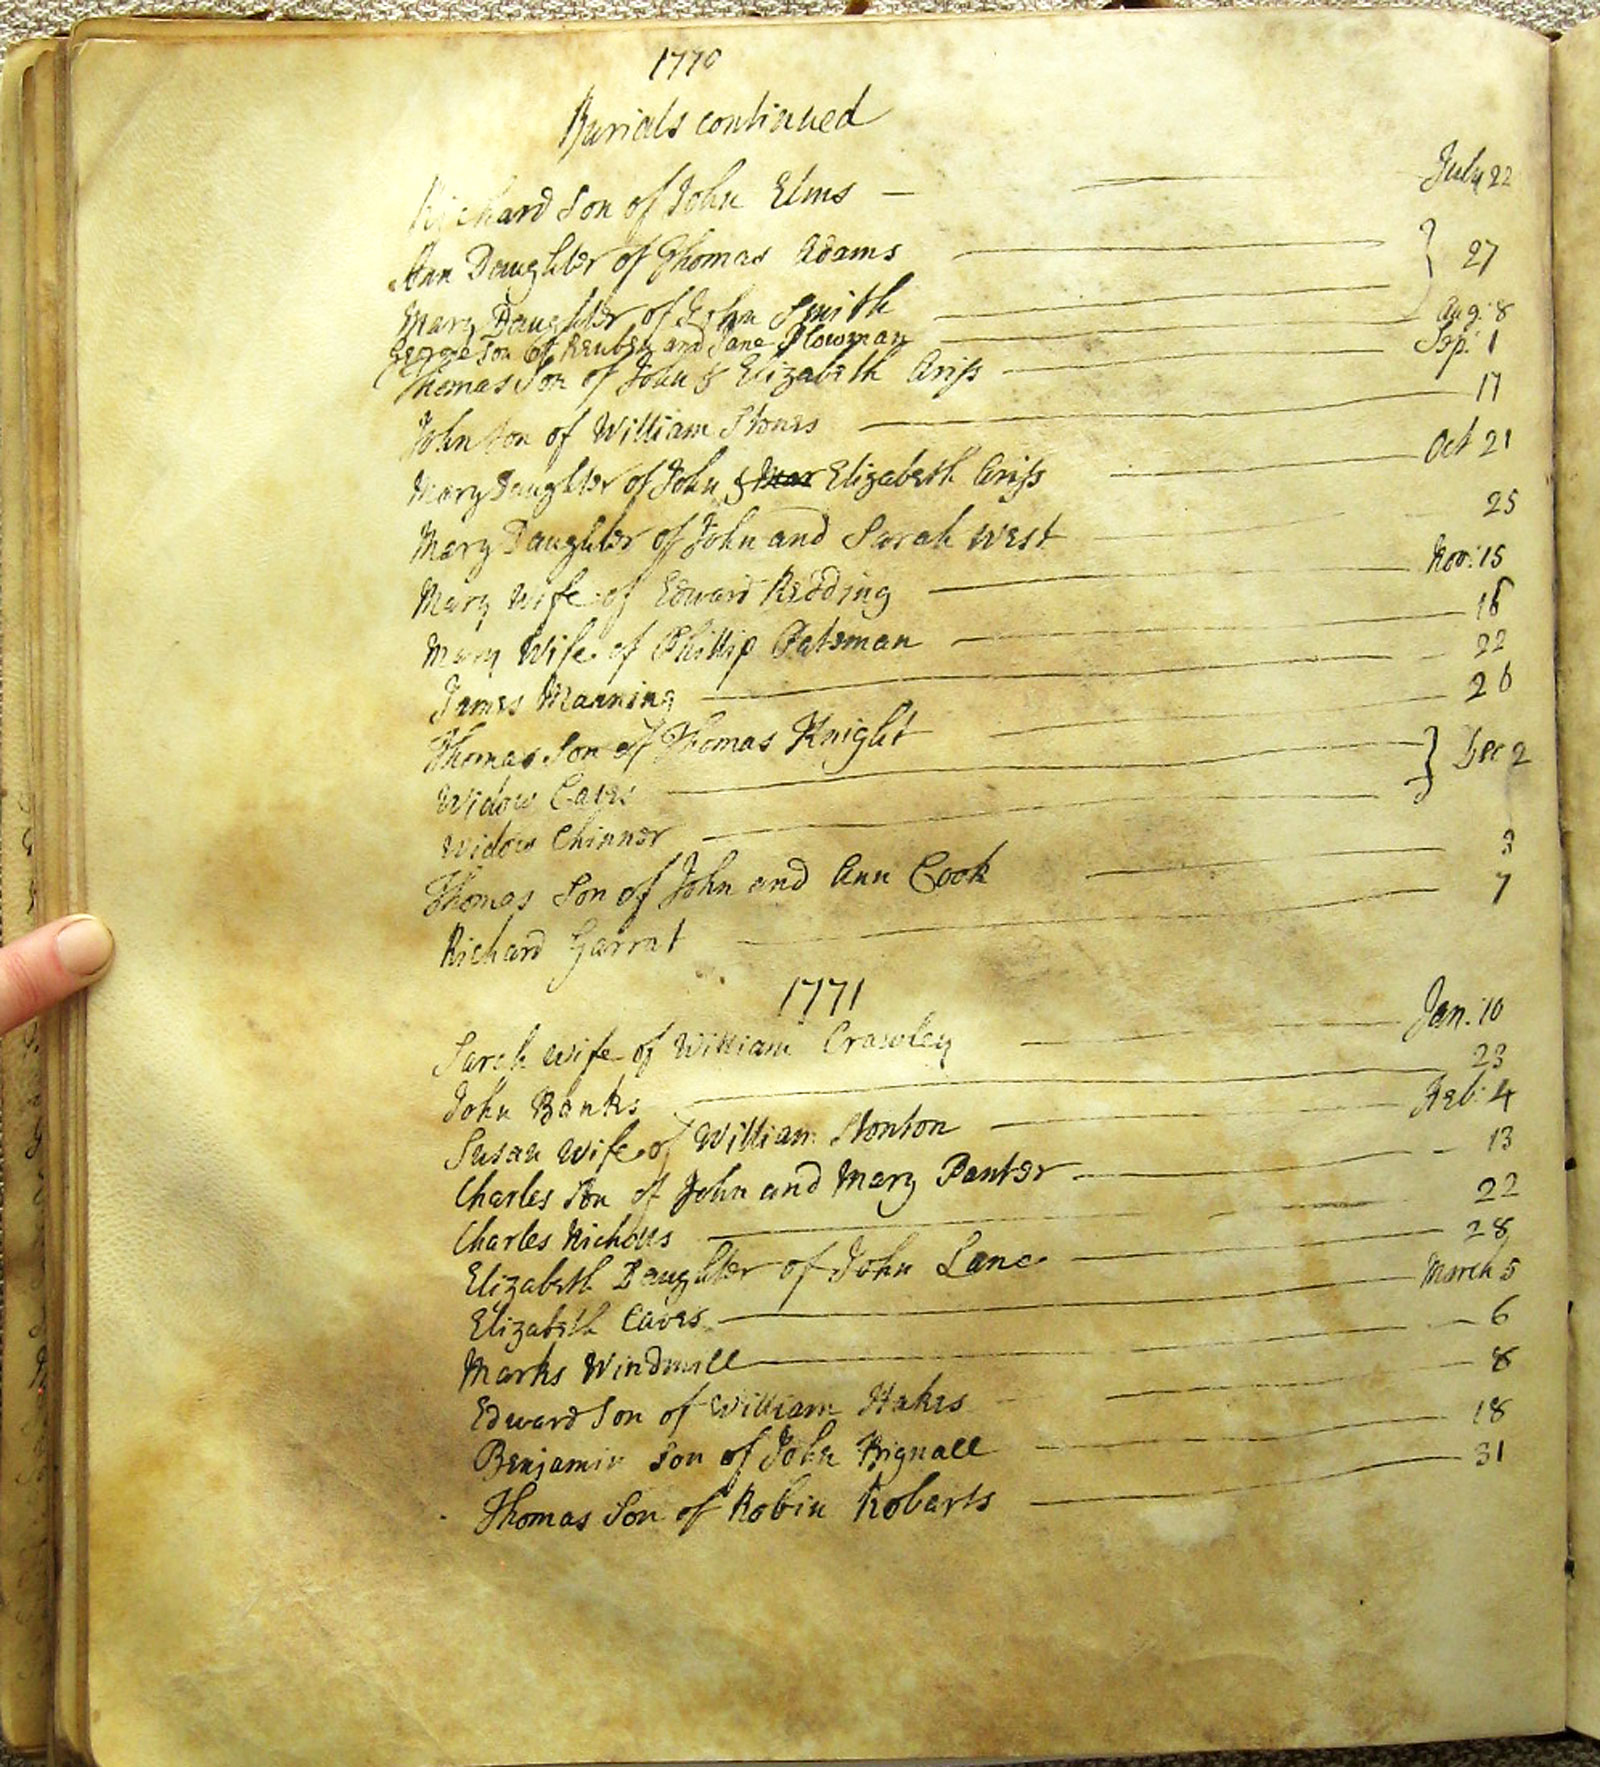 1770
Burials continued
Richard Son of John Elms — July 22
Ann Daughter of Thomas Adams — } 27
Mary Daughter of John Smith —
George Son of Reuben and Jane Plowman — Aug: 8
Thomas Son of John & Elizabeth Ariss — Sep: 1
John Son of William Stones — 17
Mary Daughter of John & Mar Elizabeth Ariss — Oct 21
Mary Daughter of John and Sarah West — 25
Mary Wife of Edward Redding — Nov: 15
Mary Wife of Phillip Patsman — 16
James Manning — 22
Thomas Son of Thomas Knight — 26
Widow Eaves — } Dec 2
Widow Chinner —
Thomas Son of John and Ann Cook — 3
Richard Garrat — 7
1771
Sarah Wife of William Crawley — Jan: 10
John Banks — 23
Susan Wife of William Stonton — Feb: 4
Charles Son of John and Mary Panter — 13
Charles Nicholls — 22
Elizabeth Daughter of John Lane — 28
Elizabeth Eaves — March 5
Marks Windmill — 6
Edward Son of William Hakes — 8
Benjamin Son of John Bignall — 18
Thomas Son of Robin Robarts — 31